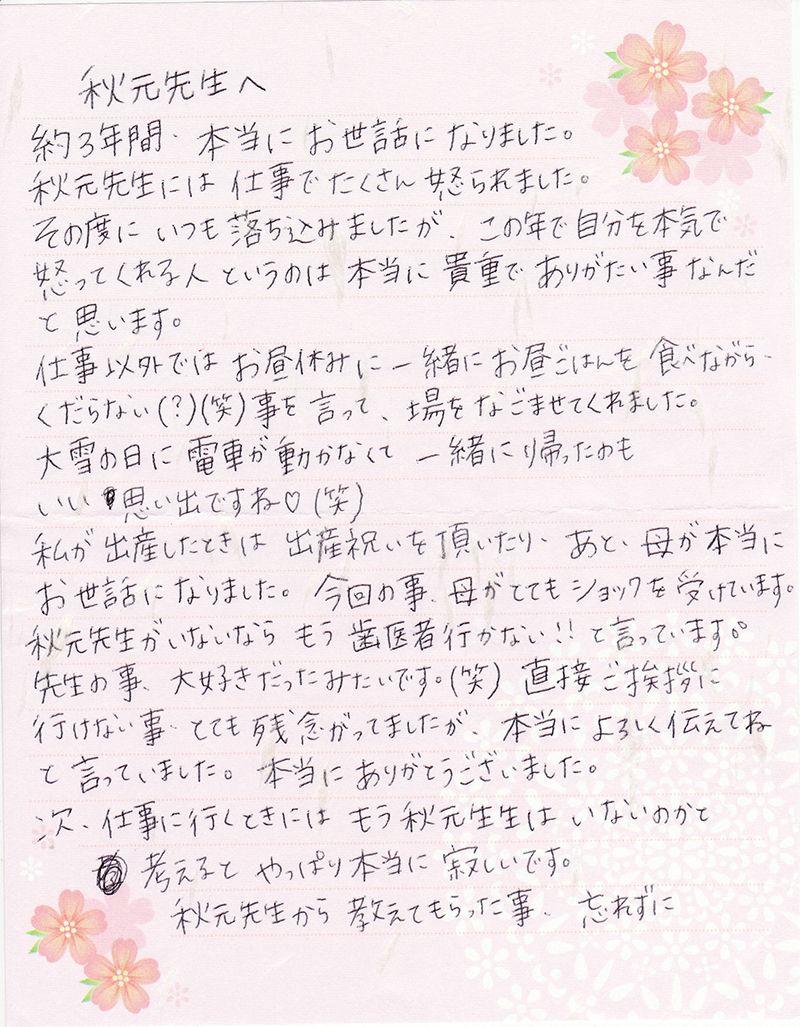 秋元先生へ
約3年間、本当にお世話になりました。
秋元先生には仕事でたくさん怒られました。
その度にいつも落ち込みましたが、この年で自分を本気で
怒ってくれる人というのは本当に貴重でありがたい事なんだ
と思います。
仕事以外ではお昼休みに一緒にお昼ごはんを食べながら、
くだらない(?)(笑)事を言って、場をなごませてくれました。
大雪の日に電車が動かなくて一緒に帰ったのも
いい思い出ですね♡(笑)
私が出産したときは出産祝いを頂いたり、あと、母が本当に
お世話になりました。今回の事、母がとてもショックを受けています。
秋元先生がいないならもう歯医者行かない!!と言っています。
先生の事、大好きだったみたいです。(笑)直接ご挨拶に
行けない事、とても残念がってましたが、本当によろしく伝えてね
と言っていました。本当にありがとうございました。
次、仕事に行くときにはもう秋元先生はいないのかと
考えるとやっぱり本当に寂しいです。
秋元先生から教えてもらった事、忘れずに